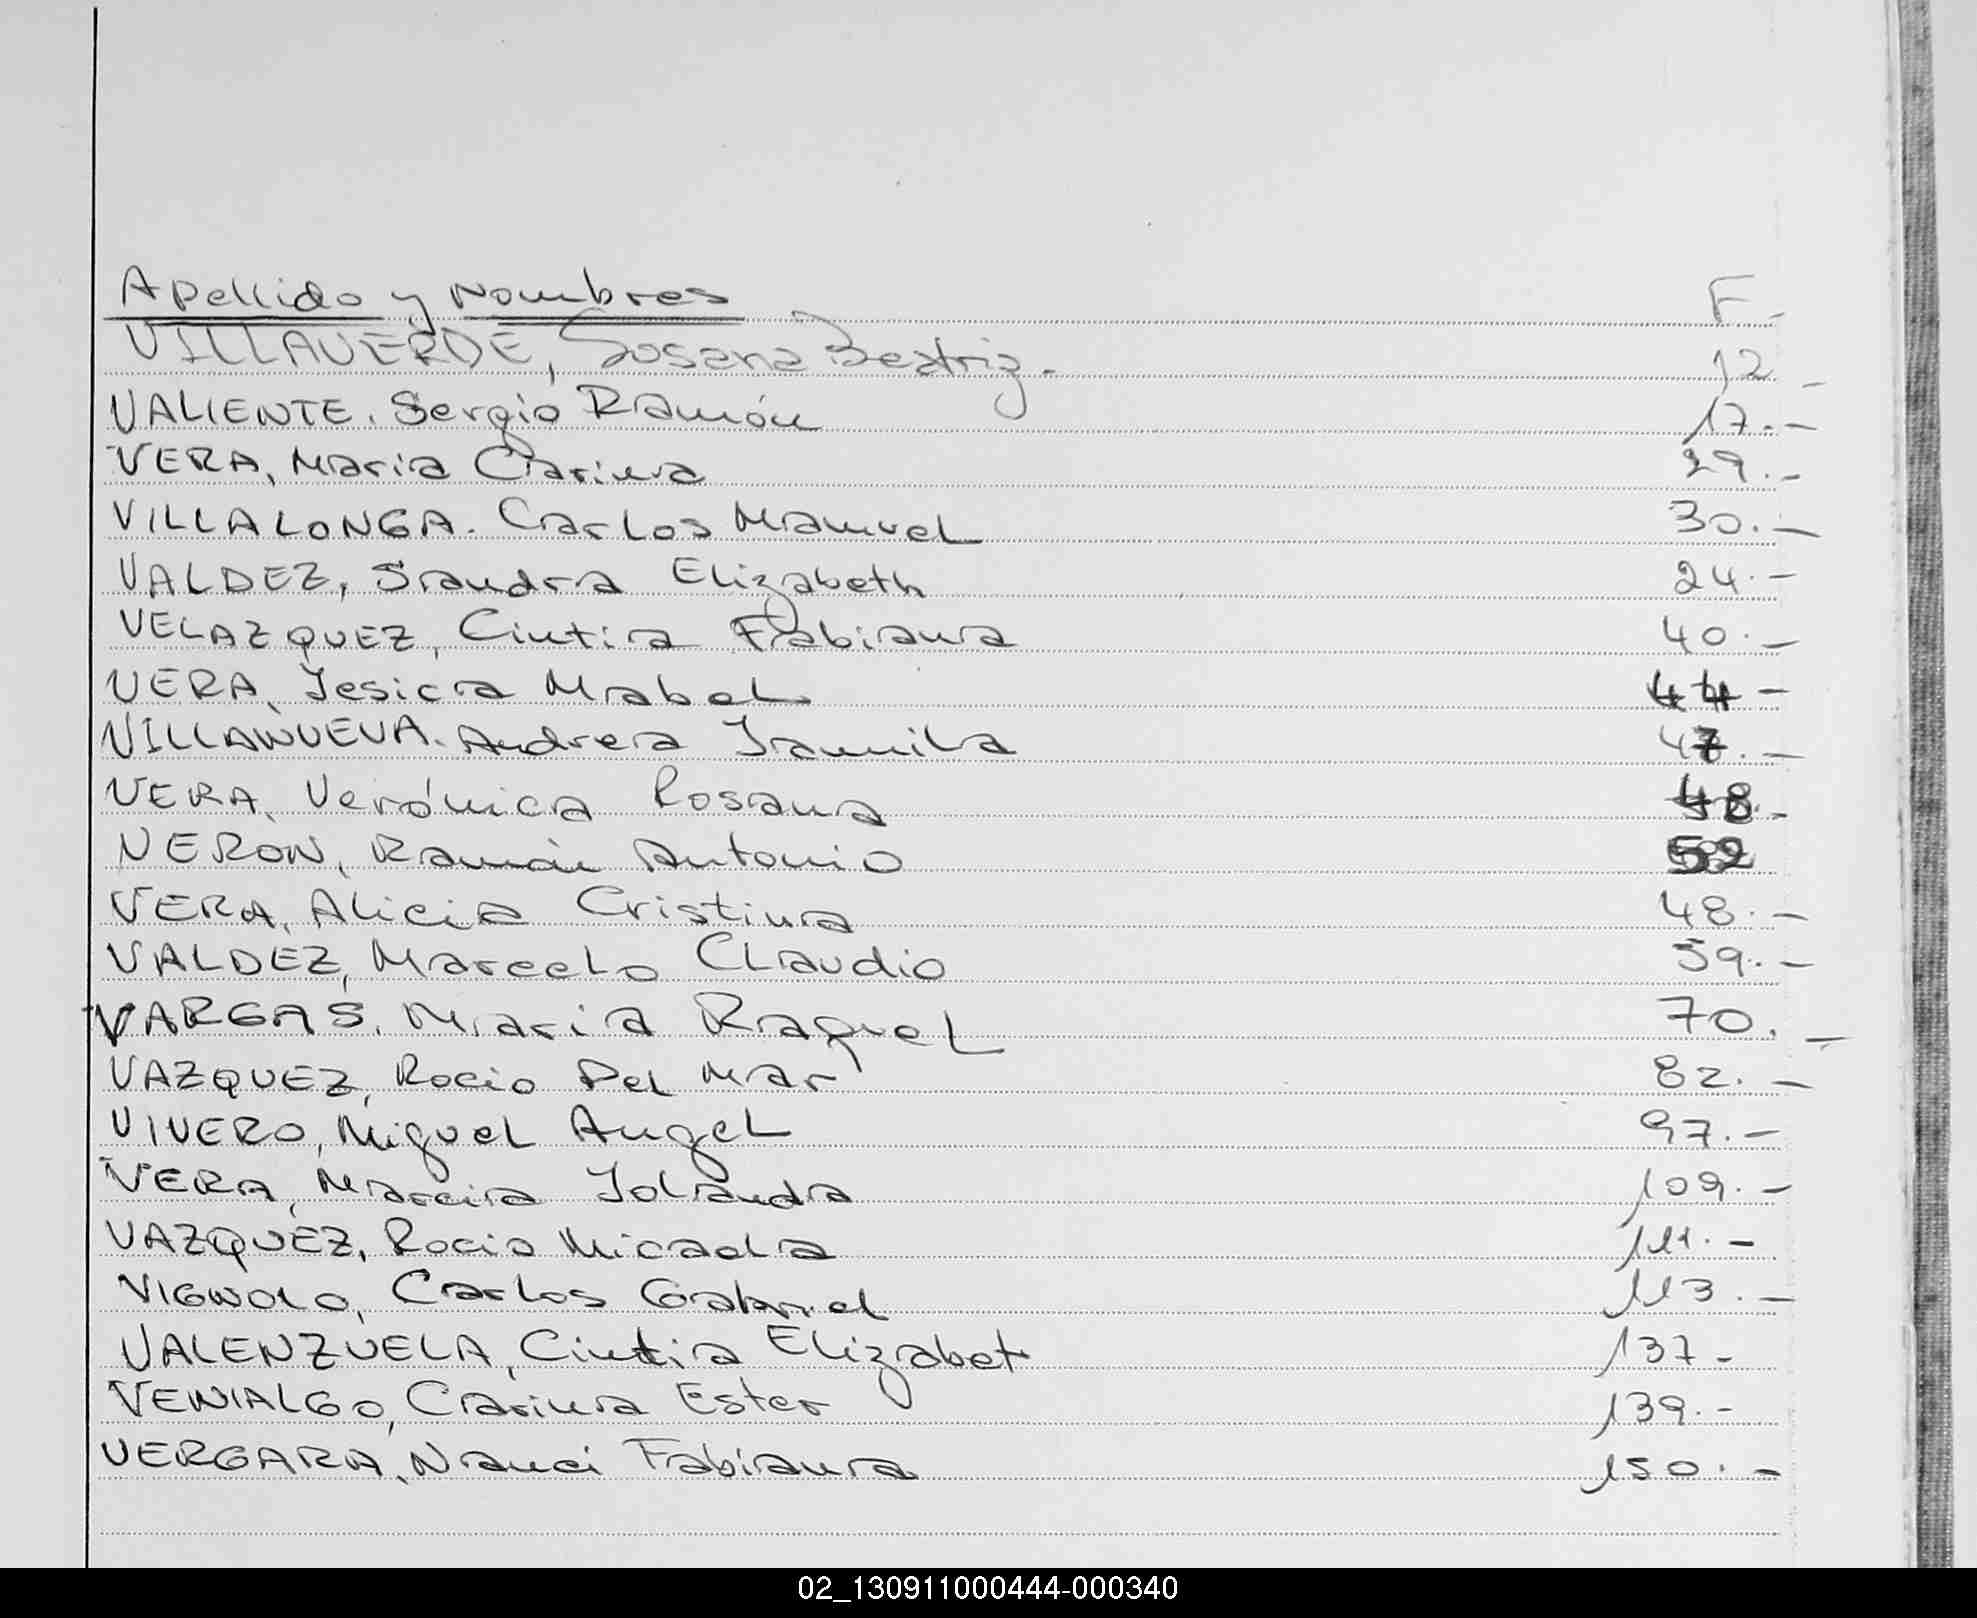 Apellido y Nombres F.
VILLAVERDE, Susana Beatriz. 12 -
VALIENTE. Sergio Ramón 17.-
VERA, Maria Clarina 29.-
VILLALONGA. Carlos Manuel 30.-
VALDEZ, Sandra Elizabeth 24.-
VELAZQUEZ, Cintia Fabiana 40.-
VERA, Jesica Mabel 44 -
VILLANUEVA. Andrea Jamila 47.-
VERA, Verónica Rosana 48.-
VERON, Ramón Antonio 52
VERA, Alicia Cristina 48.-
VALDEZ, Marcelo Claudio 59.-
VARGAS, Maria Raquel 70.-
VAZQUEZ, Rocio Del Mar 82.-
VIVERO, Miguel Angel 97.-
VERA, Marcia Yolanda 109.-
VAZQUEZ, Rocio Micaela 111.-
VIGNOLO, Carlos Gabriel 113.-
VALENZUELA, Cintia Elizabet 137-
VENIALGO, Carina Ester 139.-
VERGARA, Nanci Fabiana 150.-
02_130911000444-000340